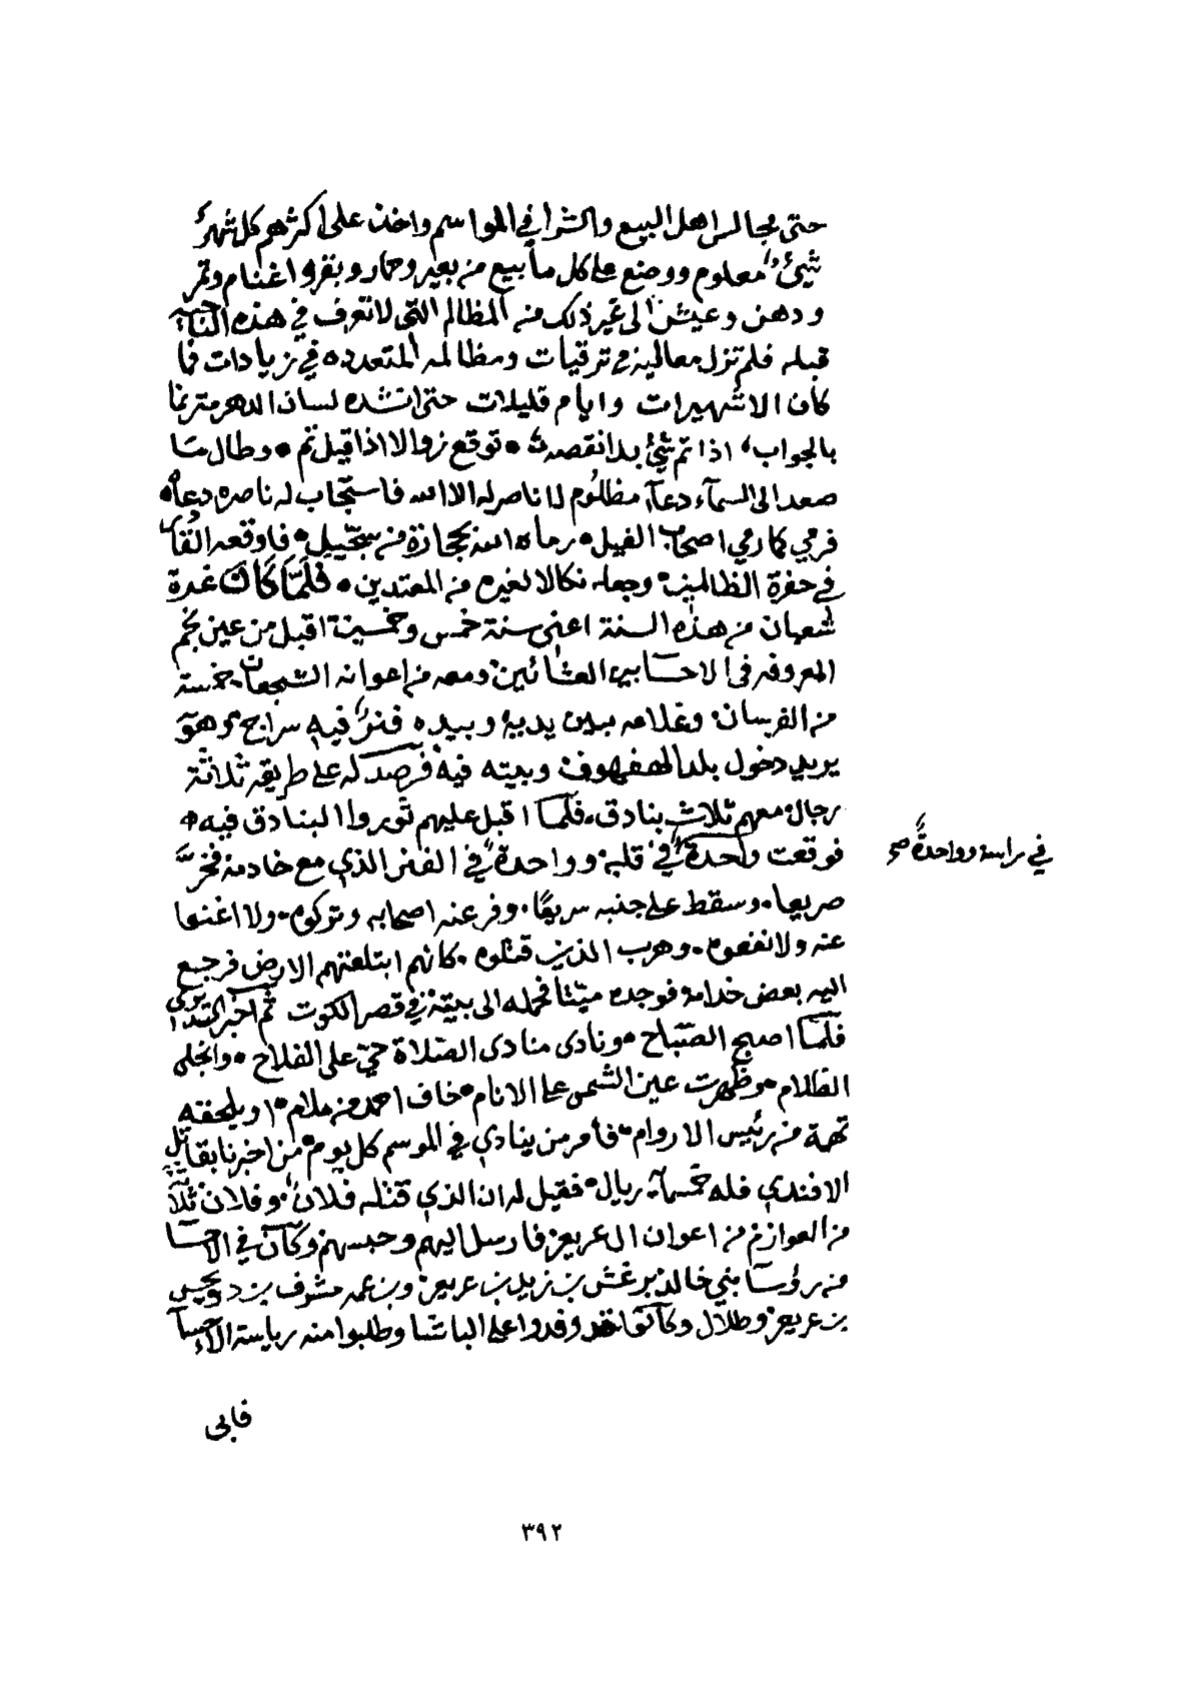 حتى مجالس اهل البيع والشرا في المواسم واخذ على اكثرهم كل شهر
شيئ معلوم ووضع على كل ما بيع من بعير وحمار وبقر واغنام وتمر
ودهن وعيش الى غير ذلك من المظالم التي لا تعرف في هذه الناحية
قبله فلم تزل معاليه في ترقيات ومظالمه المتعدده في زيادات فما
كان الا شهيرات وايام قليلات حتى انشده لسان الدهر مترنما
بالجواب، اذا تم شيئ بدا نقصه توقع زوالا اذا قيل تم وطال ما
صعد الى السمآء دعآء مظلوم لا ناصر له الا الله فاستجاب له ناصره دعآه
فرمي كما رمي اصحاب الفيل رماه الله بحجارة من سجيل فاوقعه القآء
في حفرة الظالمين وجعله نكالا لغيره من المعتدين فلما كان غرة
شعبان من هذه السنة اعني سنة خمس وخمسين اقبل من عين نجم
المعروفه في الاحسا بين العشائين ومعه من اعوانه الشجعان خمسة
من الفرسان وغلامه بين يديه وبيده فنر فيه سراج وهو
يريد دخول بلد الهفهوف وبيته فيه فرصد له على طريقه ثلاثة
رجال معهم ثلاث بنادق فلما اقبل عليهم ثوروا البنادق فيه
فوقعت واحدة في قلبه وواحدة في الفنر الذي مع خادمه فخر
في راسه وواحدة صح
صريعا وسقط على جنبه سريعا وفر عنه اصحابه وتركوه ولا اغنوا
عنه ولا نفعوه وهرب الذين قتلوه كانهم ابتلعتهم الارض فرجع
اليه بعض خدامه فوجده ميتا فحمله الى بيته في قصر الكوت ثم اخبر السديري
فلما اصبح الصباح ونادى منادى الصلاة حي على الفلاح وانجلى
الظلام وظهرت عين الشمس على الانام خاف احمد من ملام او يلحقه
تهمة من رئيس الاروام فأمر من ينادي في الموسم كل يوم من اخبرنا بقاتل
الافندي فله خمسمآية ريال فقيل له ان الذي قتله فلان وفلان ثلاثة
من العوازم من اعوان ال عريعر فارسل اليهم وحبسهم وكان في الاحسا
من رؤسا بني خالد برغش بن زيد بن عريعر وبن عمه مشرف بن دويحس
بن عريعر وطلال وكانوا قد وفدوا على الباشا وطلبوا منه رياسة الاحسآ
فابى
٣٩٢